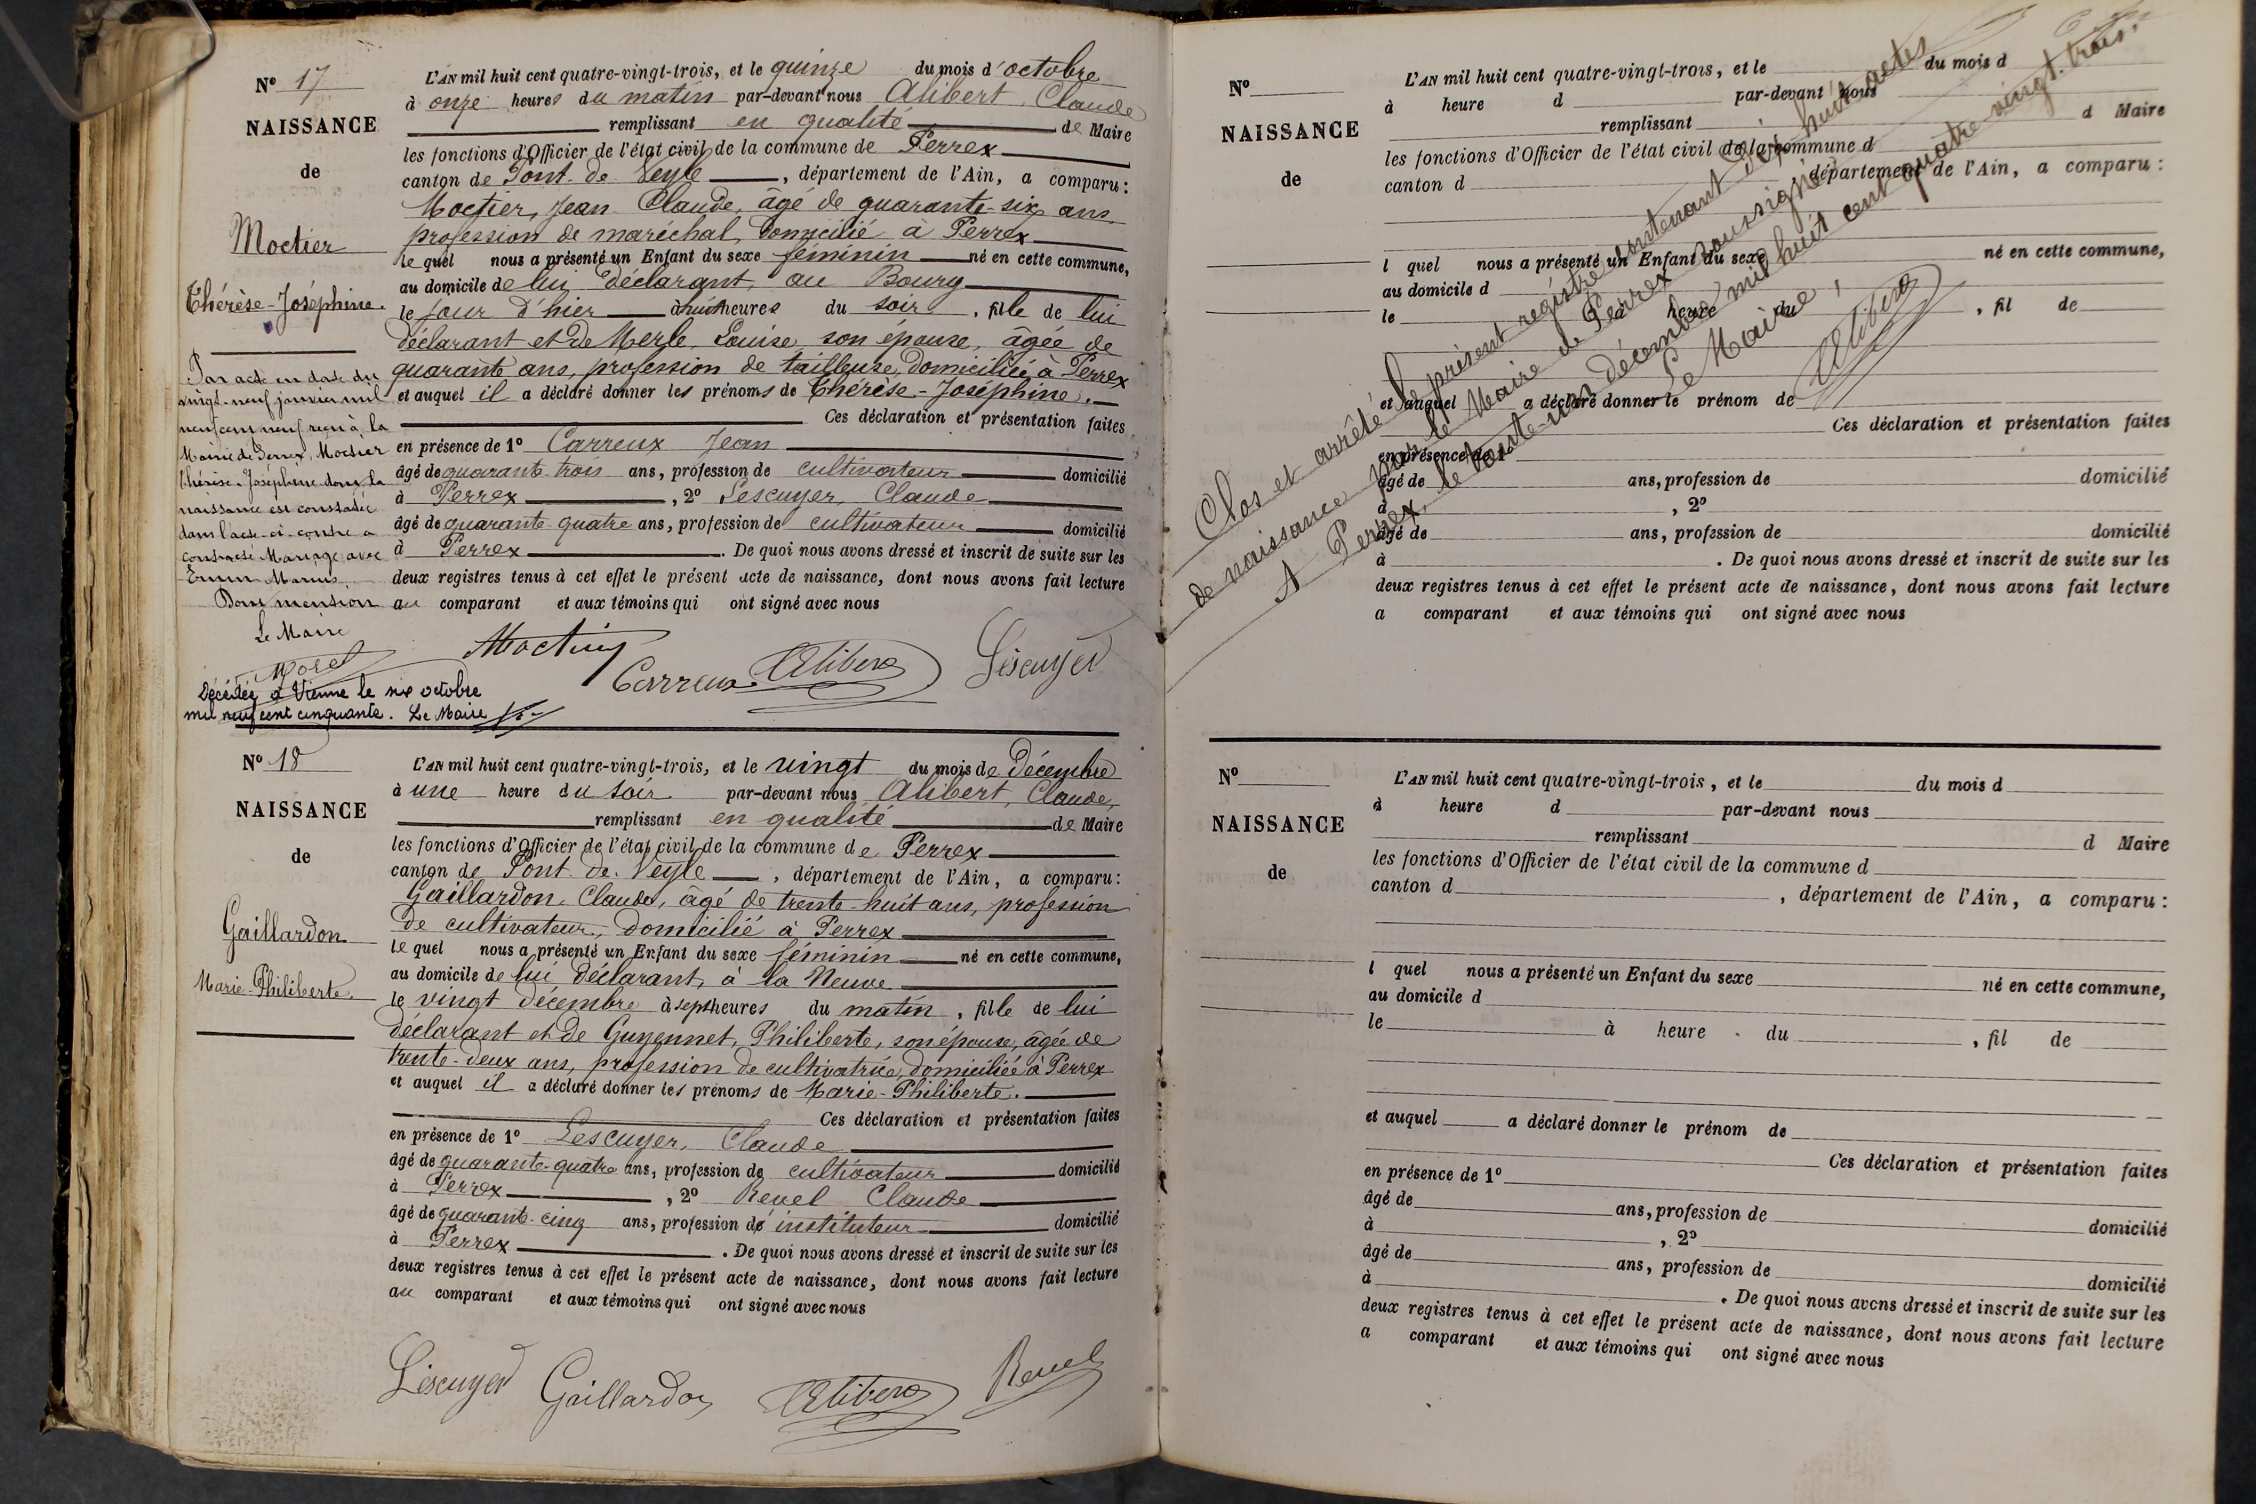 N° 17
NAISSANCE
de
Moctier
Thérèse-Joséphine.
Par acte en date du
vingt-neuf janvier mil
neuf cent neuf reçu à la
Mairie de Perrex, Moctier
Thérèse-Joséphine dont la
naissance est constatée
dans l'acte ci-contre a
contracté Mariage avec
Marius
Dont mention
Le Maire
Morel
Décédée à Vienne le six octobre
mil neuf cent cinquante. Le Maire
L'AN mil huit cent quatre-vingt-trois, et le quinze du mois d'octobre
à onze heures du matin par-devant nous Alibert, Claude
remplissant en qualité de Maire
les fonctions d'Officier de l'état civil de la commune de Perrex
canton de Pont-de-Veyle, département de l'Ain, a comparu:
Moctier, Jean Claude, âgé de quarante-six ans
profession de maréchal, domicilié à Perrex
le quel nous a présenté un Enfant du sexe féminin né en cette commune,
au domicile de lui déclarant, au Bourg
le jour d'hier à huit heures du soir, fille de lui
déclarant et de Merle, Louise, son épouse, âgée de
quarante ans, profession de tailleuse, domiciliée à Perrex
et auquel il a déclaré donner les prénoms de Thérèse-Joséphine.
Ces déclaration et présentation faites
en présence de 1° Carreux Jean
âgé de quarante-trois ans, profession de cultivateur domicilié
à Perrex, 2° Lescuyer, Claude
âgé de quarante-quatre ans, profession de cultivateur domicilié
à Perrex. De quoi nous avons dressé et inscrit de suite sur les
deux registres tenus à cet effet le présent acte de naissance, dont nous avons fait lecture
au comparant et aux témoins qui ont signé avec nous
Moctier Carreux Alibert Lescuyer
N° 18
NAISSANCE
de
Gaillardon
Marie-Philiberte.
L'AN mil huit cent quatre-vingt-trois, et le vingt du mois de Décembre
à une heure du soir par-devant nous Alibert, Claude,
remplissant en qualité de Maire
les fonctions d'Officier de l'état civil de la commune de Perrex
canton de Pont-de-Veyle, département de l'Ain, a comparu:
Gaillardon, Claude, âgé de trente-huit ans, profession
de cultivateur, domicilié à Perrex
le quel nous a présenté un Enfant du sexe féminin né en cette commune,
au domicile de lui déclarant, à la Neuve
le vingt décembre à sept heures du matin, fille de lui
déclarant et de Guyennet, Philiberte, son épouse, âgée de
trente-deux ans, profession de cultivatrice, domiciliée à Perrex
et auquel il a déclaré donner les prénoms de Marie-Philiberte.
Ces déclaration et présentation faites
en présence de 1° Lescuyer, Claude
âgé de quarante-quatre ans, profession de cultivateur domicilié
à Perrex, 2° Revel Claude
âgé de quarante-cinq ans, profession de instituteur domicilié
à Perrex. De quoi nous avons dressé et inscrit de suite sur les
deux registres tenus à cet effet le présent acte de naissance, dont nous avons fait lecture
au comparant et aux témoins qui ont signé avec nous
Lescuyer Gaillardon Alibert Revel
N°
NAISSANCE
de
L'AN mil huit cent quatre-vingt-trois, et le du mois d
à heure d par-devant nous
remplissant d Maire
les fonctions d'Officier de l'état civil de la commune d
canton d, département de l'Ain, a comparu:
l quel nous a présenté un Enfant du sexe né en cette commune,
au domicile d
le à heure du, fil de
et auquel a déclaré donner le prénom de
Ces déclaration et présentation faites
en présence de 1°
âgé de ans, profession de domicilié
à, 2°
âgé de ans, profession de domicilié
à. De quoi nous avons dressé et inscrit de suite sur les
deux registres tenus à cet effet le présent acte de naissance, dont nous avons fait lecture
a comparant et aux témoins qui ont signé avec nous
Clos et arrêté le présent registre contenant dix huit actes
de naissance par le Maire de Perrex soussigné
A Perrex, le trente-un décembre mil huit cent quatre-vingt-trois.
Le Maire,
Alibert
N°
NAISSANCE
de
L'AN mil huit cent quatre-vingt-trois, et le du mois d
à heure d par-devant nous
remplissant d Maire
les fonctions d'Officier de l'état civil de la commune d
canton d, département de l'Ain, a comparu:
l quel nous a présenté un Enfant du sexe né en cette commune,
au domicile d
le à heure du, fil de
et auquel a déclaré donner le prénom de
Ces déclaration et présentation faites
en présence de 1°
âgé de ans, profession de domicilié
à, 2°
âgé de ans, profession de domicilié
à. De quoi nous avons dressé et inscrit de suite sur les
deux registres tenus à cet effet le présent acte de naissance, dont nous avons fait lecture
a comparant et aux témoins qui ont signé avec nous